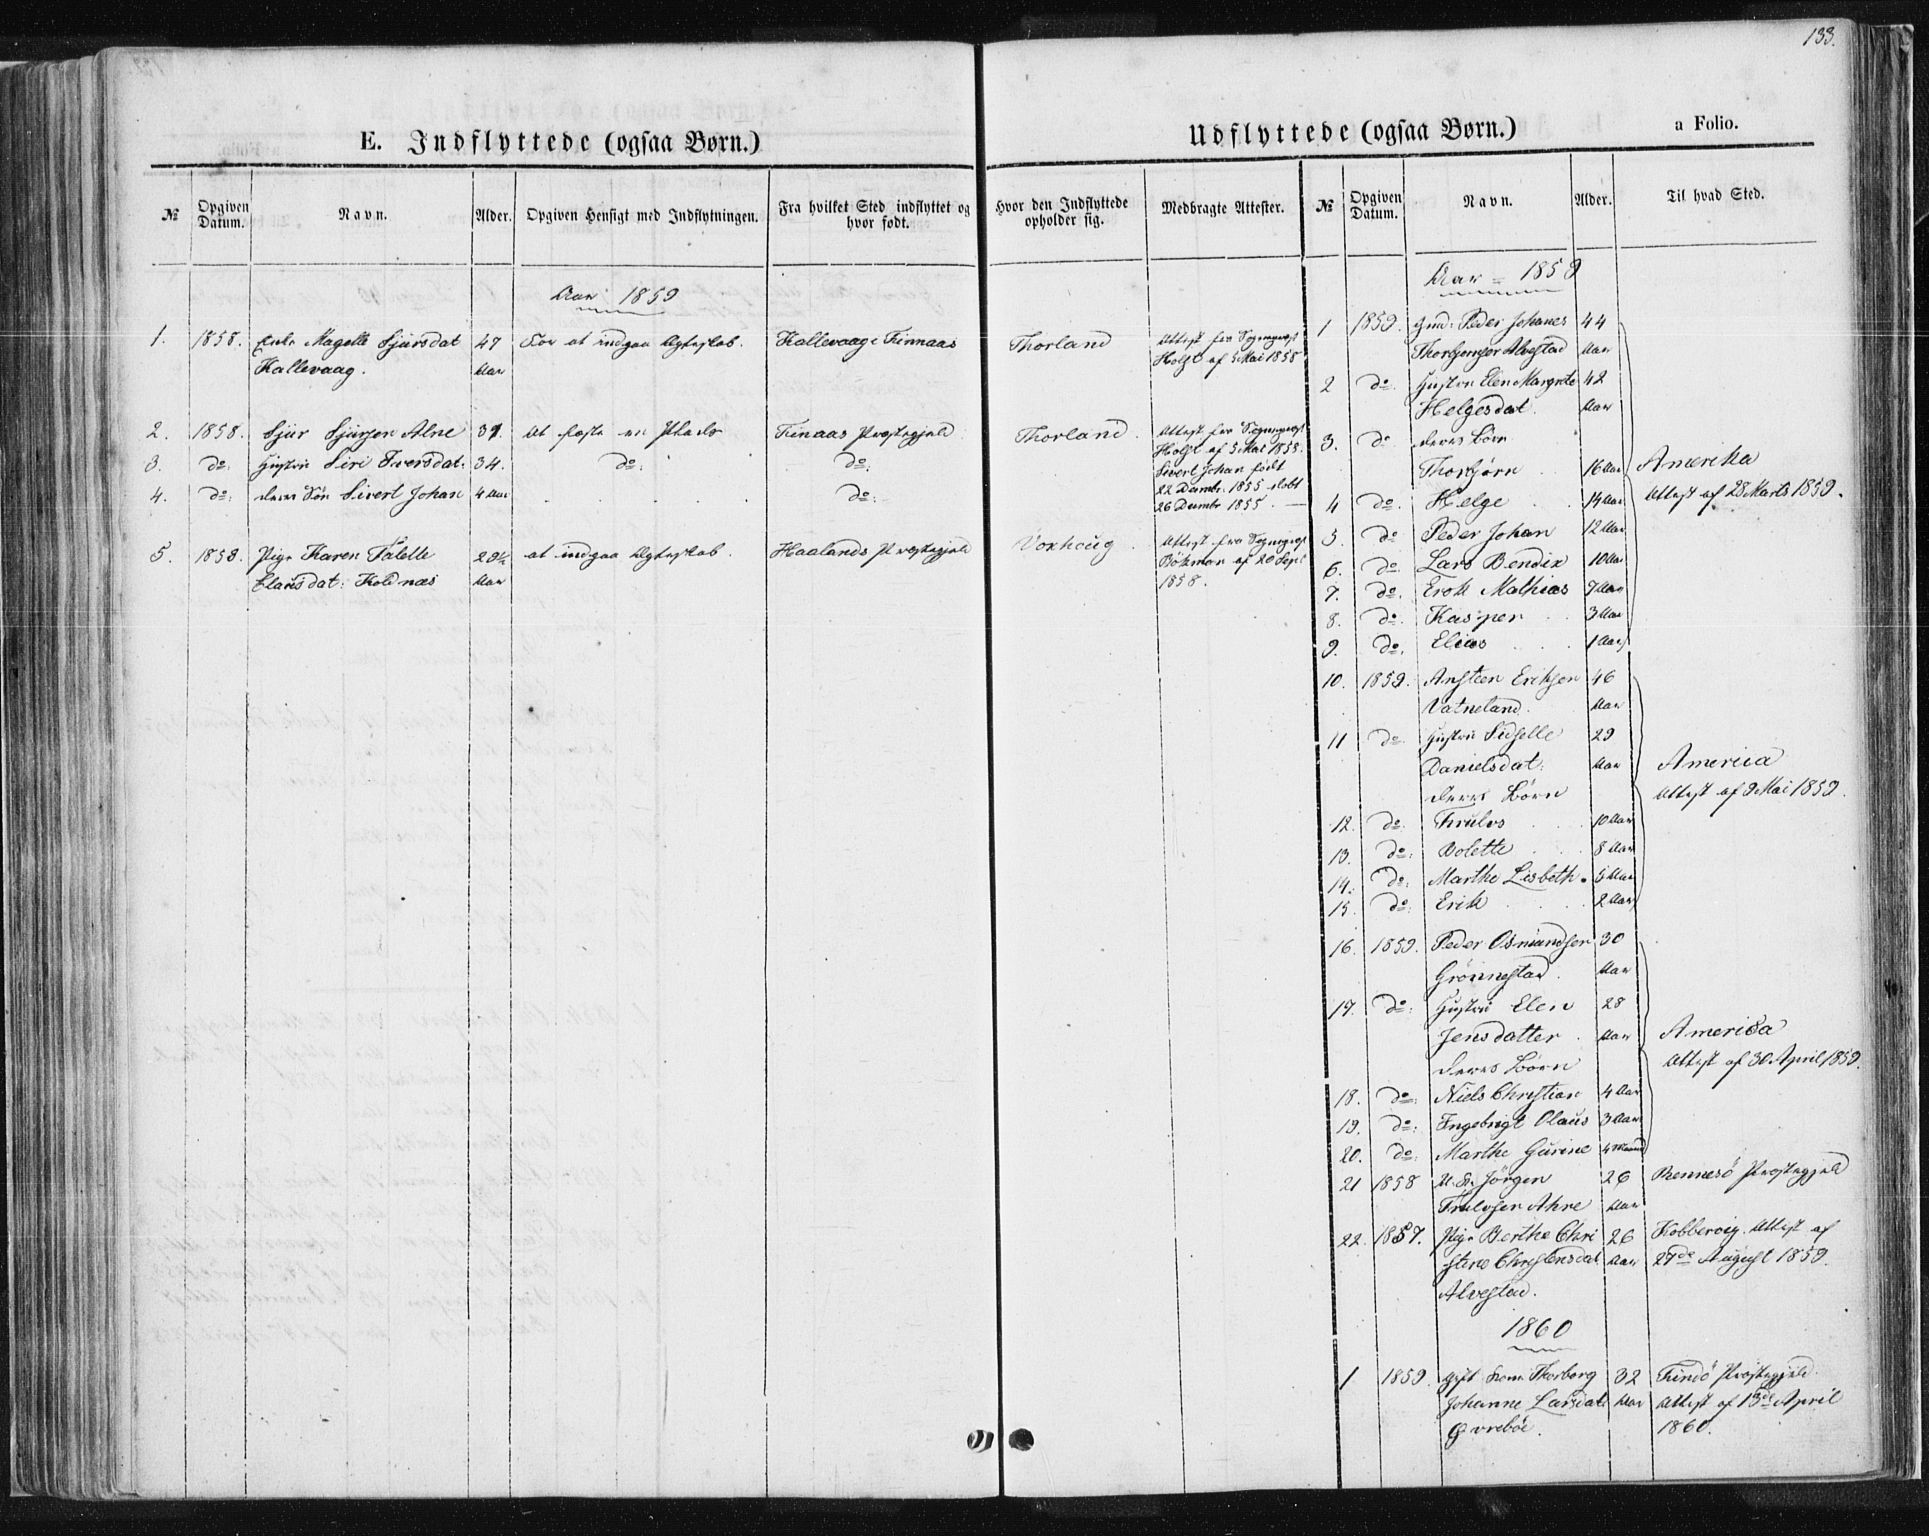 133.
E. Indflyttede (ogsaa Børn.)
№
Opgiven Datum.
Navn.
Alder.
Opgiven Hensigt med Indflytningen.
Fra hvilket Sted indflyttet og hvor født.
Hvor den Indflyttede opholder sig.
Medbragte Attester.
Aar 1859
1. 1858. Enke Magelle Sjursdat 47 For at indgaa Ægteskab. Kallevaag i Finnaas Thorland Attest fra Sogneprest
Kallevaag. Aar Holst af 5 Mai 1858
2. 1858. Sjur Sjursen Alne 31. At fæste en Plads Finaas Prestegjeld Thorland. Attest fra Sogneprest
3. do: Hustru Siri Iversdat. 34. do: do: Holst af 5 Mai 1858.
4. do: deres Søn Sivert Johan 4 Aar do: Sivert Johan født
22 Decembr. 1855 døbt
26 Decembr 1855.
5. 1858. Pige Karen Tälette 29½ at indgaa Ægteskab. Haalands Prestegjeld Voxhoug. Attest fra Sogneprest
Elausdat: Koldnæs Aar Bökman af 20 Sept
1858.
Udflyttede (ogsaa Børn.)
a Folio.
№
Opgiven Datum.
Navn.
Alder.
Til hvad Sted.
Aar = 1859
1 1859. Gmd: Peder Johanes 44
Thorbjønsen Alvestad Aar
2 do. Hustru Elen Margrete 42
Helgesdat. Aar
3. do deres Børn
Thorbjørn 16 Aar Amerika
4 do. Helge 14 Aar Attest af 28 Marts 1859.
5. do Peder Johan 12 Aar
6. do. Lars Bendix 10 Aar
7. do. Erik Mathias 7 Aar
8. do. Kasper 3 Aar
9. do. Elias 1 Aar
10. 1859. Ansteen Eriksen 46
Vatneland. Aar
11 do. Hustru Sidselle 29
Danielsdat: Aar America
deres Børn Attest af 9 Mai 1859.
12. do. Truls 10 Aar
13. do: Bolette 8 Aar
14. do: Marthe Lisbeth. 5 Aar
15. do: Erik 2 Aar
16. 1859. Peder Osmundsen 30
Grönnestad. Aar
17. do: Hustru Elen 28
Jensdatter. Aar America
deres Børn Attest af 30 April 1859.
18. do: Niels Christian 4 Aar
19. do: Ingebrigt Olaus 3 Aar
20. do: Marthe Gurine 4 Maaned
21 1858 U. K. Jörgen 26 Rennesö Prestegjeld
Trulsen Ahre Aar
22. 1857. Pige Berthe Chri 26 Kobbervig. Attest af
stine Christensdat Aar 27de August 1859.
Alvestad.
1860
1 1859. gift Kone Thorborg 32 Findö Prestegjeld.
Johanne Larsdat Aar Attest af 13de April
Øvreböe. 1860.